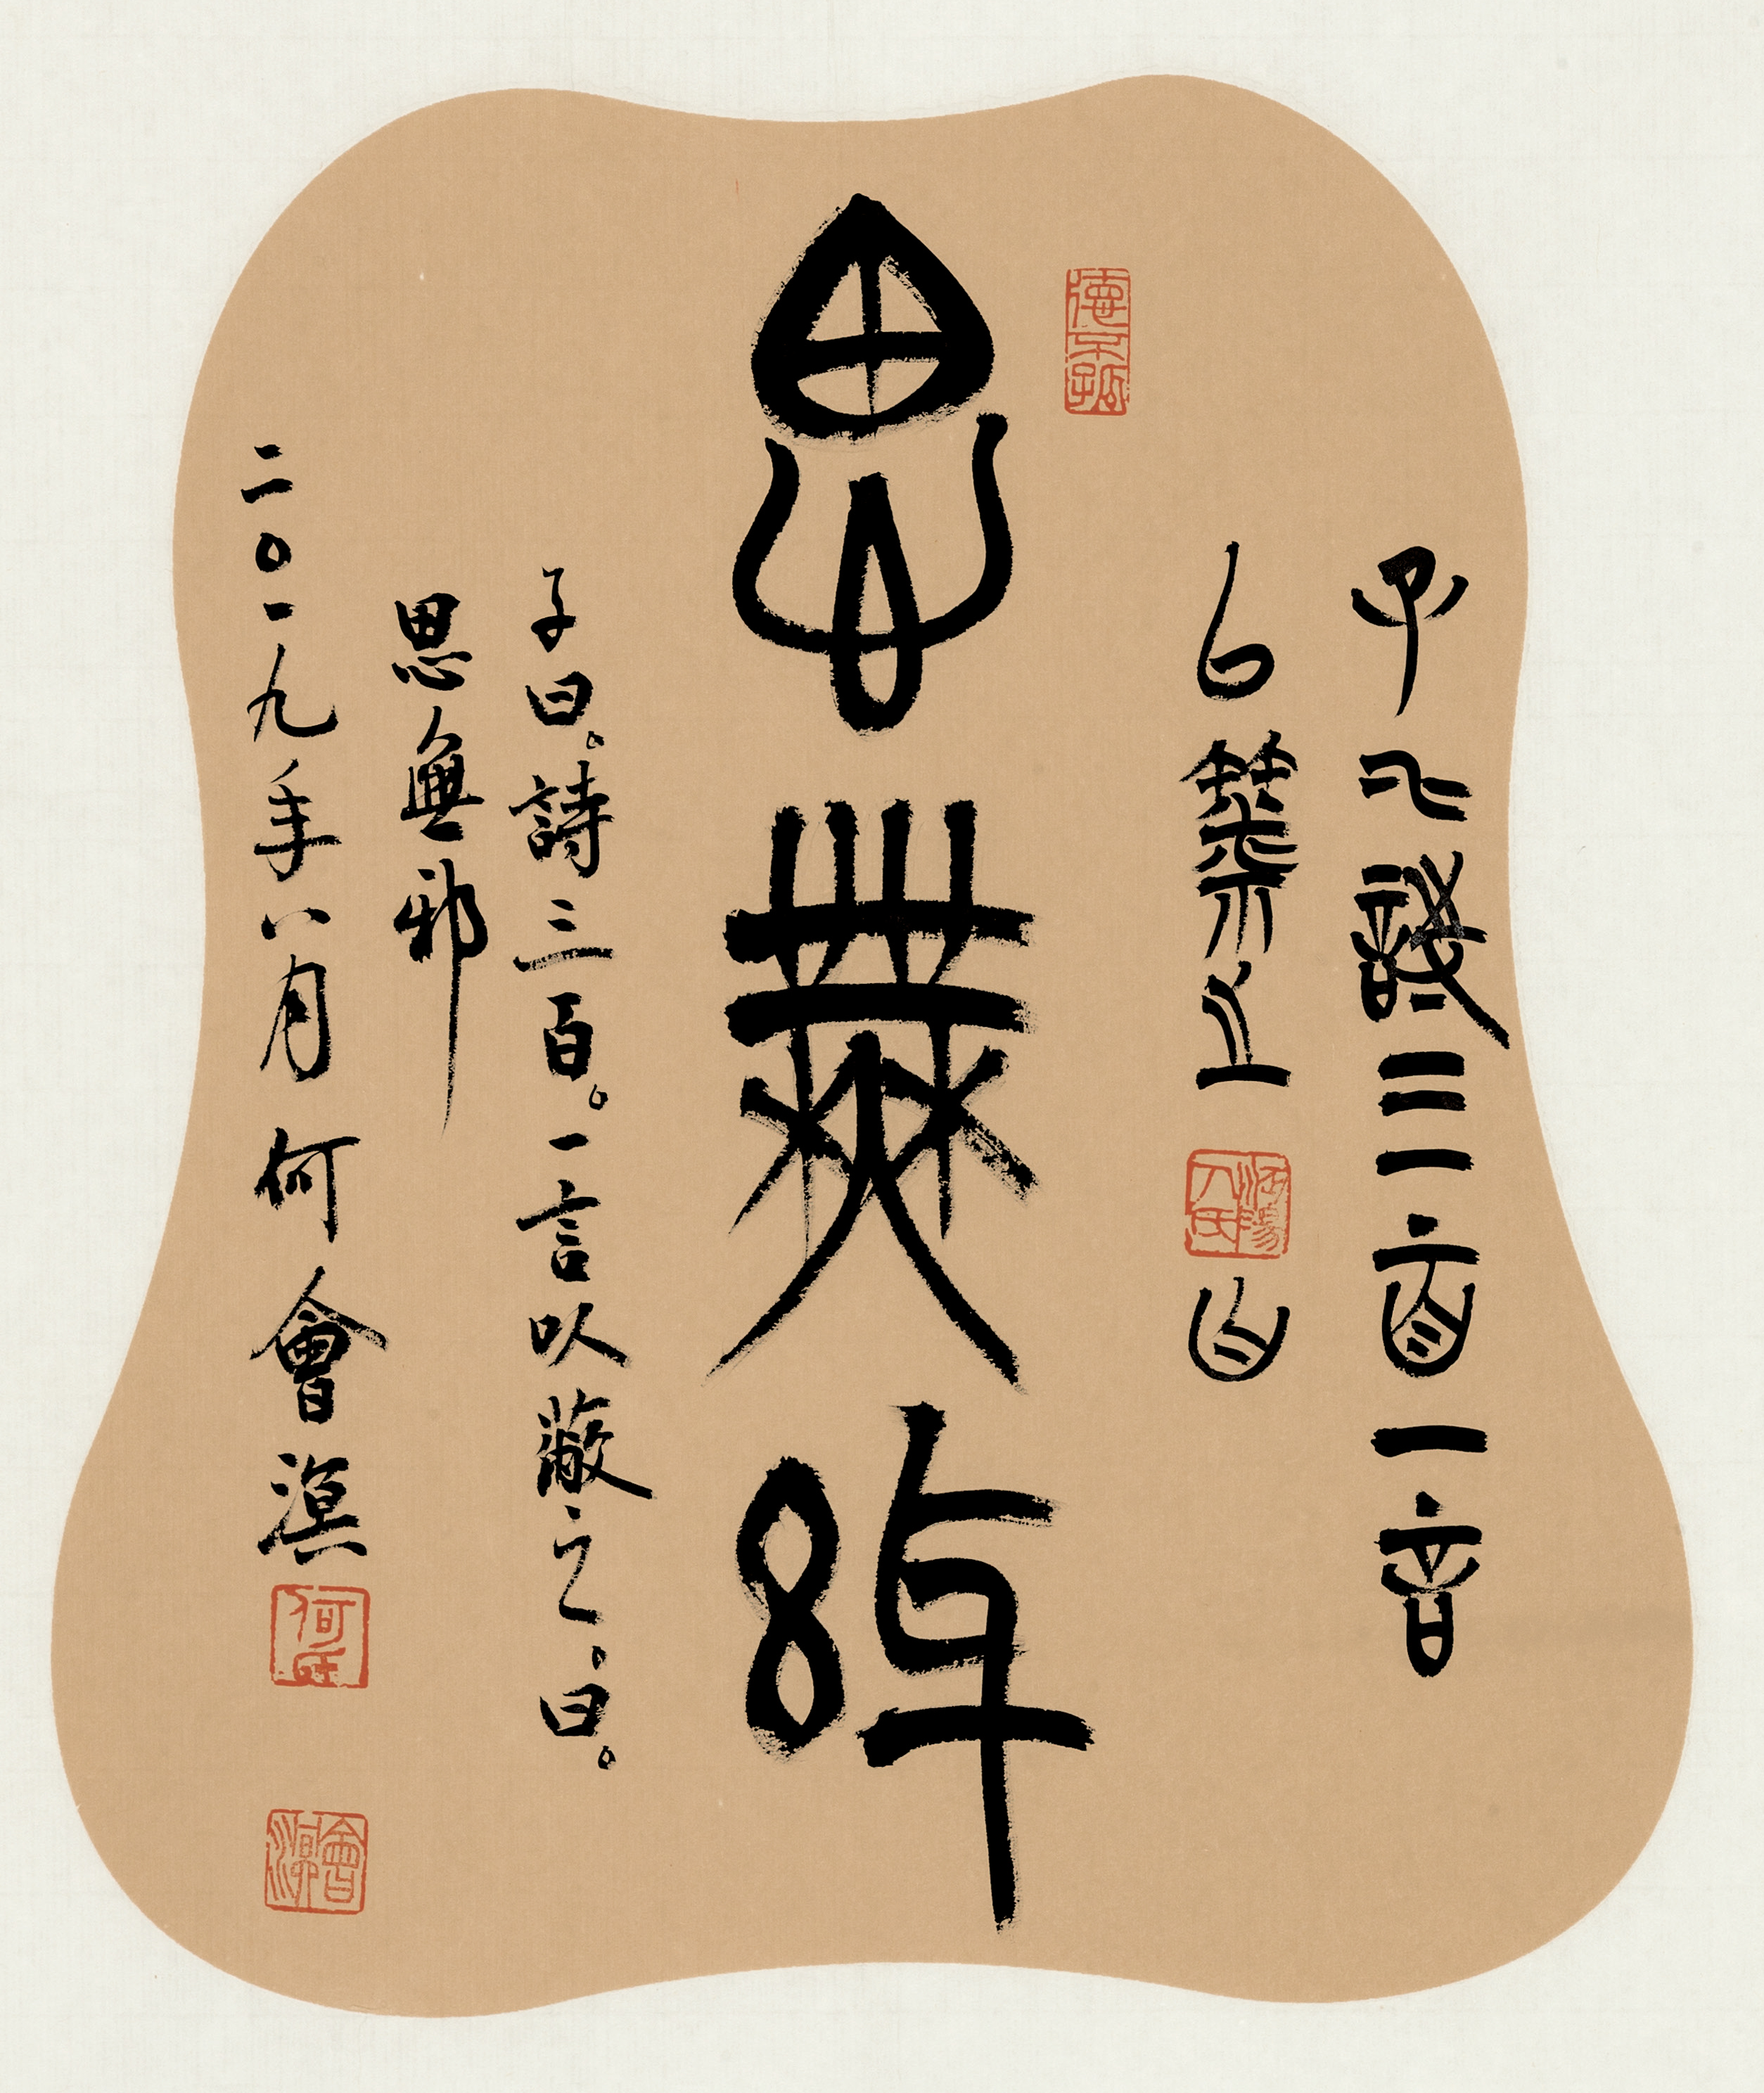 子曰詩三百一言
以蔽之曰
思無邪
子曰。詩三百。一言以蔽之。曰。
思無邪
二〇一九年八月何會淉
德不孤
何氏